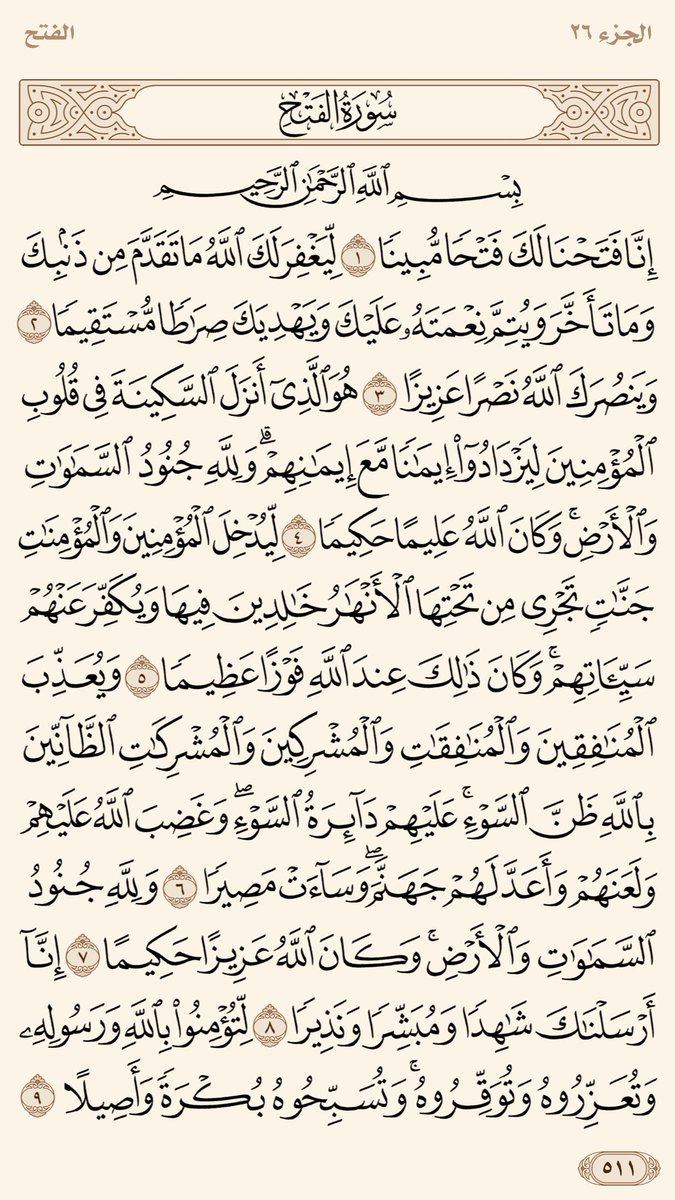 الجزء ٢٦
الفتح
سُورَةُ الفَتْحِ
بِسْمِ ٱللَّهِ ٱلرَّحْمَٰنِ ٱلرَّحِيمِ
إِنَّا فَتَحْنَا لَكَ فَتْحًا مُّبِينًا ١ لِّيَغْفِرَ لَكَ ٱللَّهُ مَا تَقَدَّمَ مِن ذَنۢبِكَ
وَمَا تَأَخَّرَ وَيُتِمَّ نِعْمَتَهُۥ عَلَيْكَ وَيَهْدِيَكَ صِرَٰطًا مُّسْتَقِيمًا ٢
وَيَنصُرَكَ ٱللَّهُ نَصْرًا عَزِيزًا ٣ هُوَ ٱلَّذِىٓ أَنزَلَ ٱلسَّكِينَةَ فِى قُلُوبِ
ٱلْمُؤْمِنِينَ لِيَزْدَادُوٓا۟ إِيمَٰنًا مَّعَ إِيمَٰنِهِمْ ۗ وَلِلَّهِ جُنُودُ ٱلسَّمَٰوَٰتِ
وَٱلْأَرْضِ ۚ وَكَانَ ٱللَّهُ عَلِيمًا حَكِيمًا ٤ لِّيُدْخِلَ ٱلْمُؤْمِنِينَ وَٱلْمُؤْمِنَٰتِ
جَنَّٰتٍ تَجْرِى مِن تَحْتِهَا ٱلْأَنْهَٰرُ خَٰلِدِينَ فِيهَا وَيُكَفِّرَ عَنْهُمْ
سَيِّـَٔاتِهِمْ ۚ وَكَانَ ذَٰلِكَ عِندَ ٱللَّهِ فَوْزًا عَظِيمًا ٥ وَيُعَذِّبَ
ٱلْمُنَٰفِقِينَ وَٱلْمُنَٰفِقَٰتِ وَٱلْمُشْرِكِينَ وَٱلْمُشْرِكَٰتِ ٱلظَّآنِّينَ
بِٱللَّهِ ظَنَّ ٱلسَّوْءِ ۚ عَلَيْهِمْ دَآئِرَةُ ٱلسَّوْءِ ۖ وَغَضِبَ ٱللَّهُ عَلَيْهِمْ
وَلَعَنَهُمْ وَأَعَدَّ لَهُمْ جَهَنَّمَ ۖ وَسَآءَتْ مَصِيرًا ٦ وَلِلَّهِ جُنُودُ
ٱلسَّمَٰوَٰتِ وَٱلْأَرْضِ ۚ وَكَانَ ٱللَّهُ عَزِيزًا حَكِيمًا ٧ إِنَّآ
أَرْسَلْنَٰكَ شَٰهِدًا وَمُبَشِّرًا وَنَذِيرًا ٨ لِّتُؤْمِنُوا۟ بِٱللَّهِ وَرَسُولِهِۦ
وَتُعَزِّرُوهُ وَتُوَقِّرُوهُ ۚ وَتُسَبِّحُوهُ بُكْرَةً وَأَصِيلًا ٩
٥١١